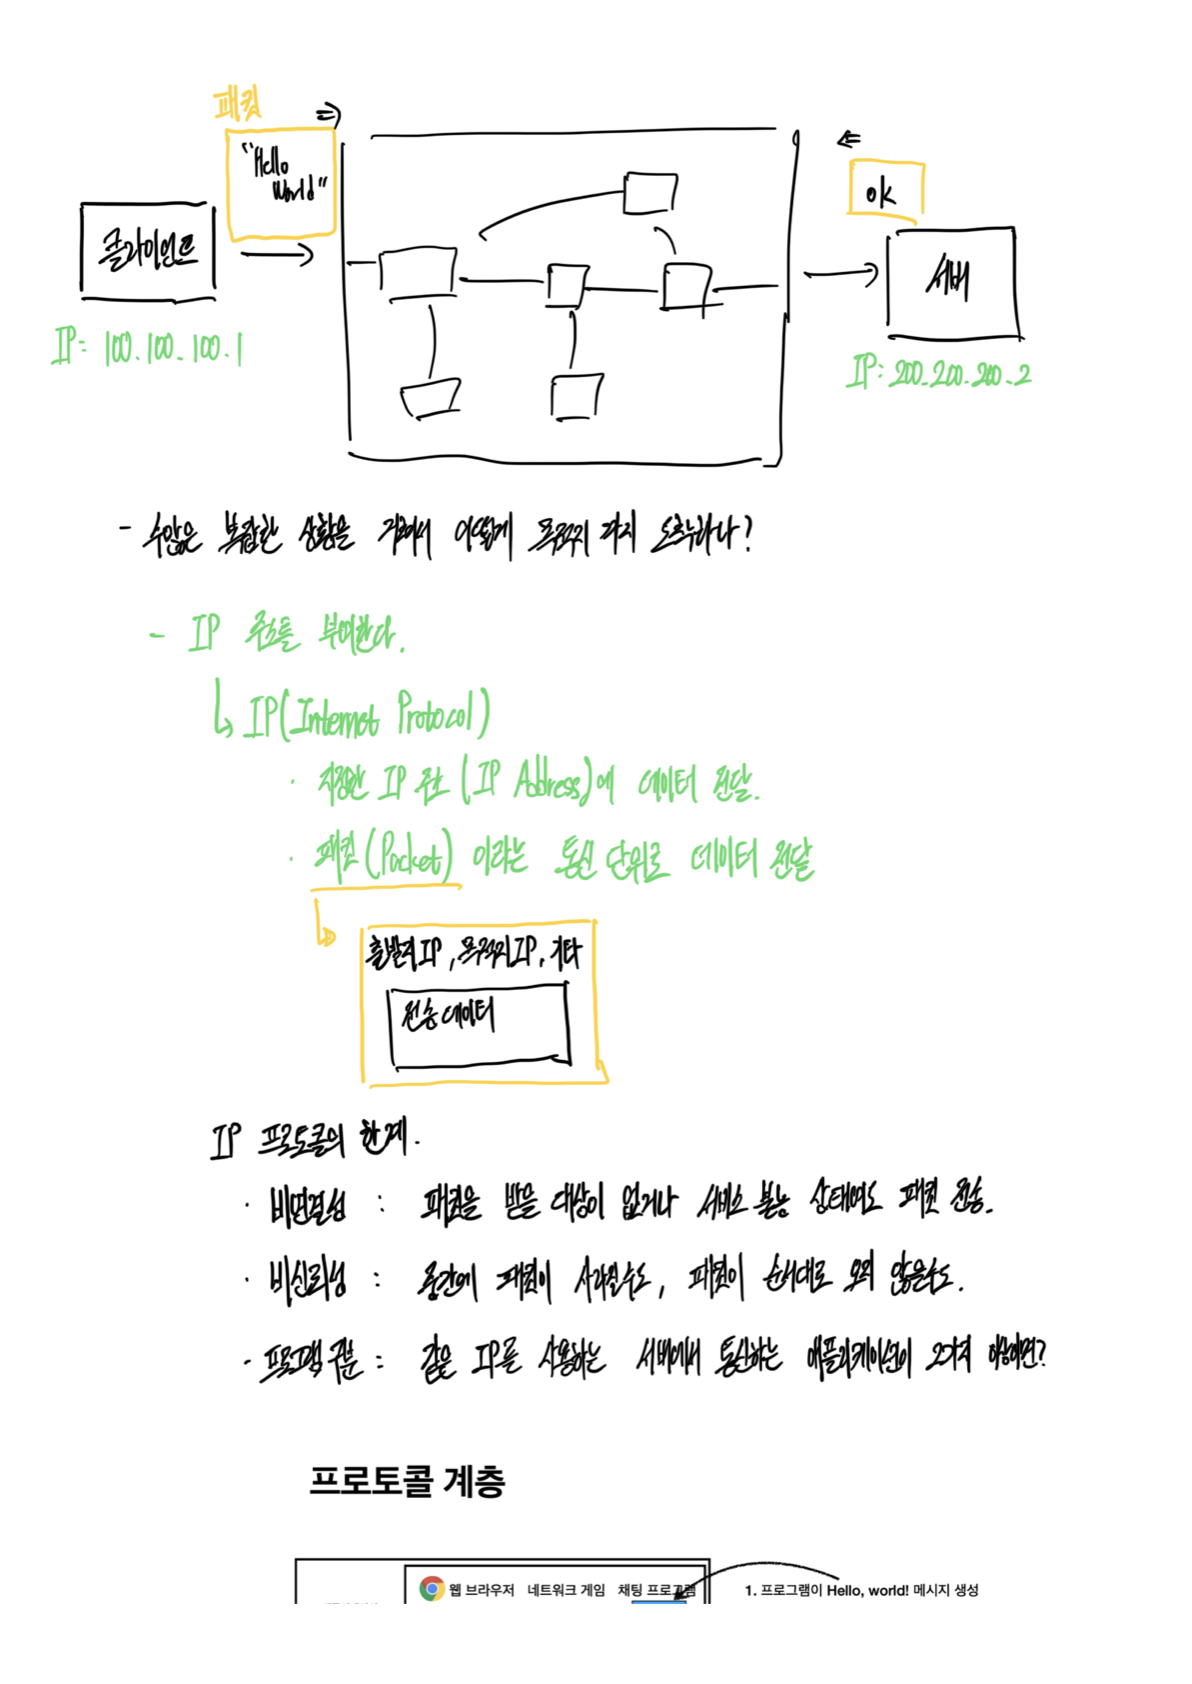 패킷
"Hello
World"
클라이언트
IP: 100.100.100.1
ok
서버
IP: 200.200.200.2
- 수많은 복잡한 상황을 거쳐서 어떻게 목적지 까지 도착하나?
- IP 주소를 부여한다.
IP(Internet Protocol)
· 지정한 IP 주소(IP Address)에 데이터 전달.
· 패킷(Packet) 이라는 통신 단위로 데이터 전달
출발지IP, 목적지IP, 기타
전송데이터
IP 프로토콜의 한계.
· 비연결성 : 패킷을 받을 대상이 없거나 서비스 불능 상태여도 패킷 전송.
· 비신뢰성 : 중간에 패킷이 사라질수도, 패킷이 순서대로 오지 않을수도.
· 프로그램 구분 : 같은 IP를 사용하는 서버에서 통신하는 애플리케이션이 2가지 이상이면?
프로토콜 계층
웹 브라우저 네트워크 게임 채팅 프로그램
1. 프로그램이 Hello, world! 메시지 생성